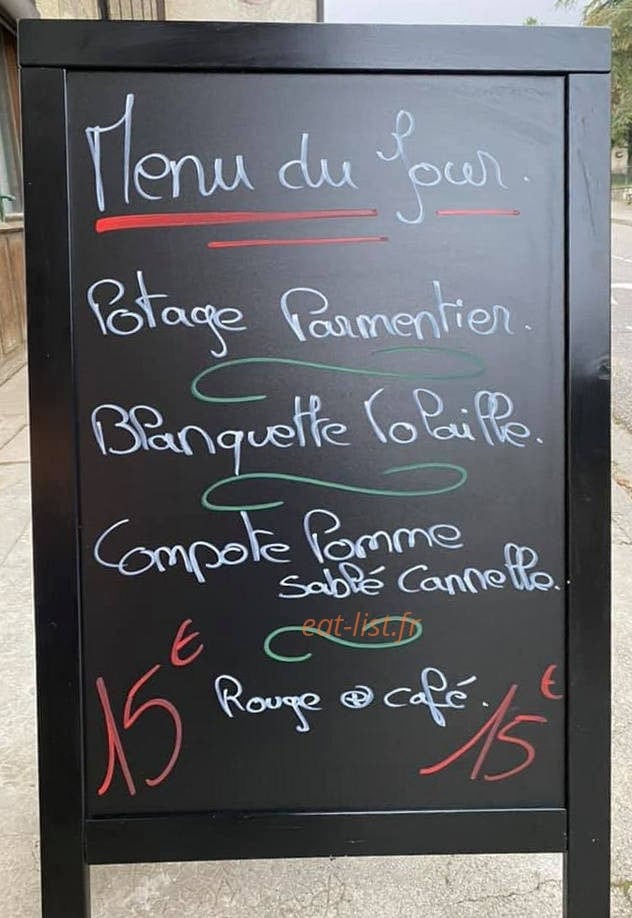 Menu du Jour.
Potage Parmentier.
Blanquette Volaille.
Compote Pomme
sablé Cannelle.
eat-list.fr
Rouge @ café.
15€ 15€